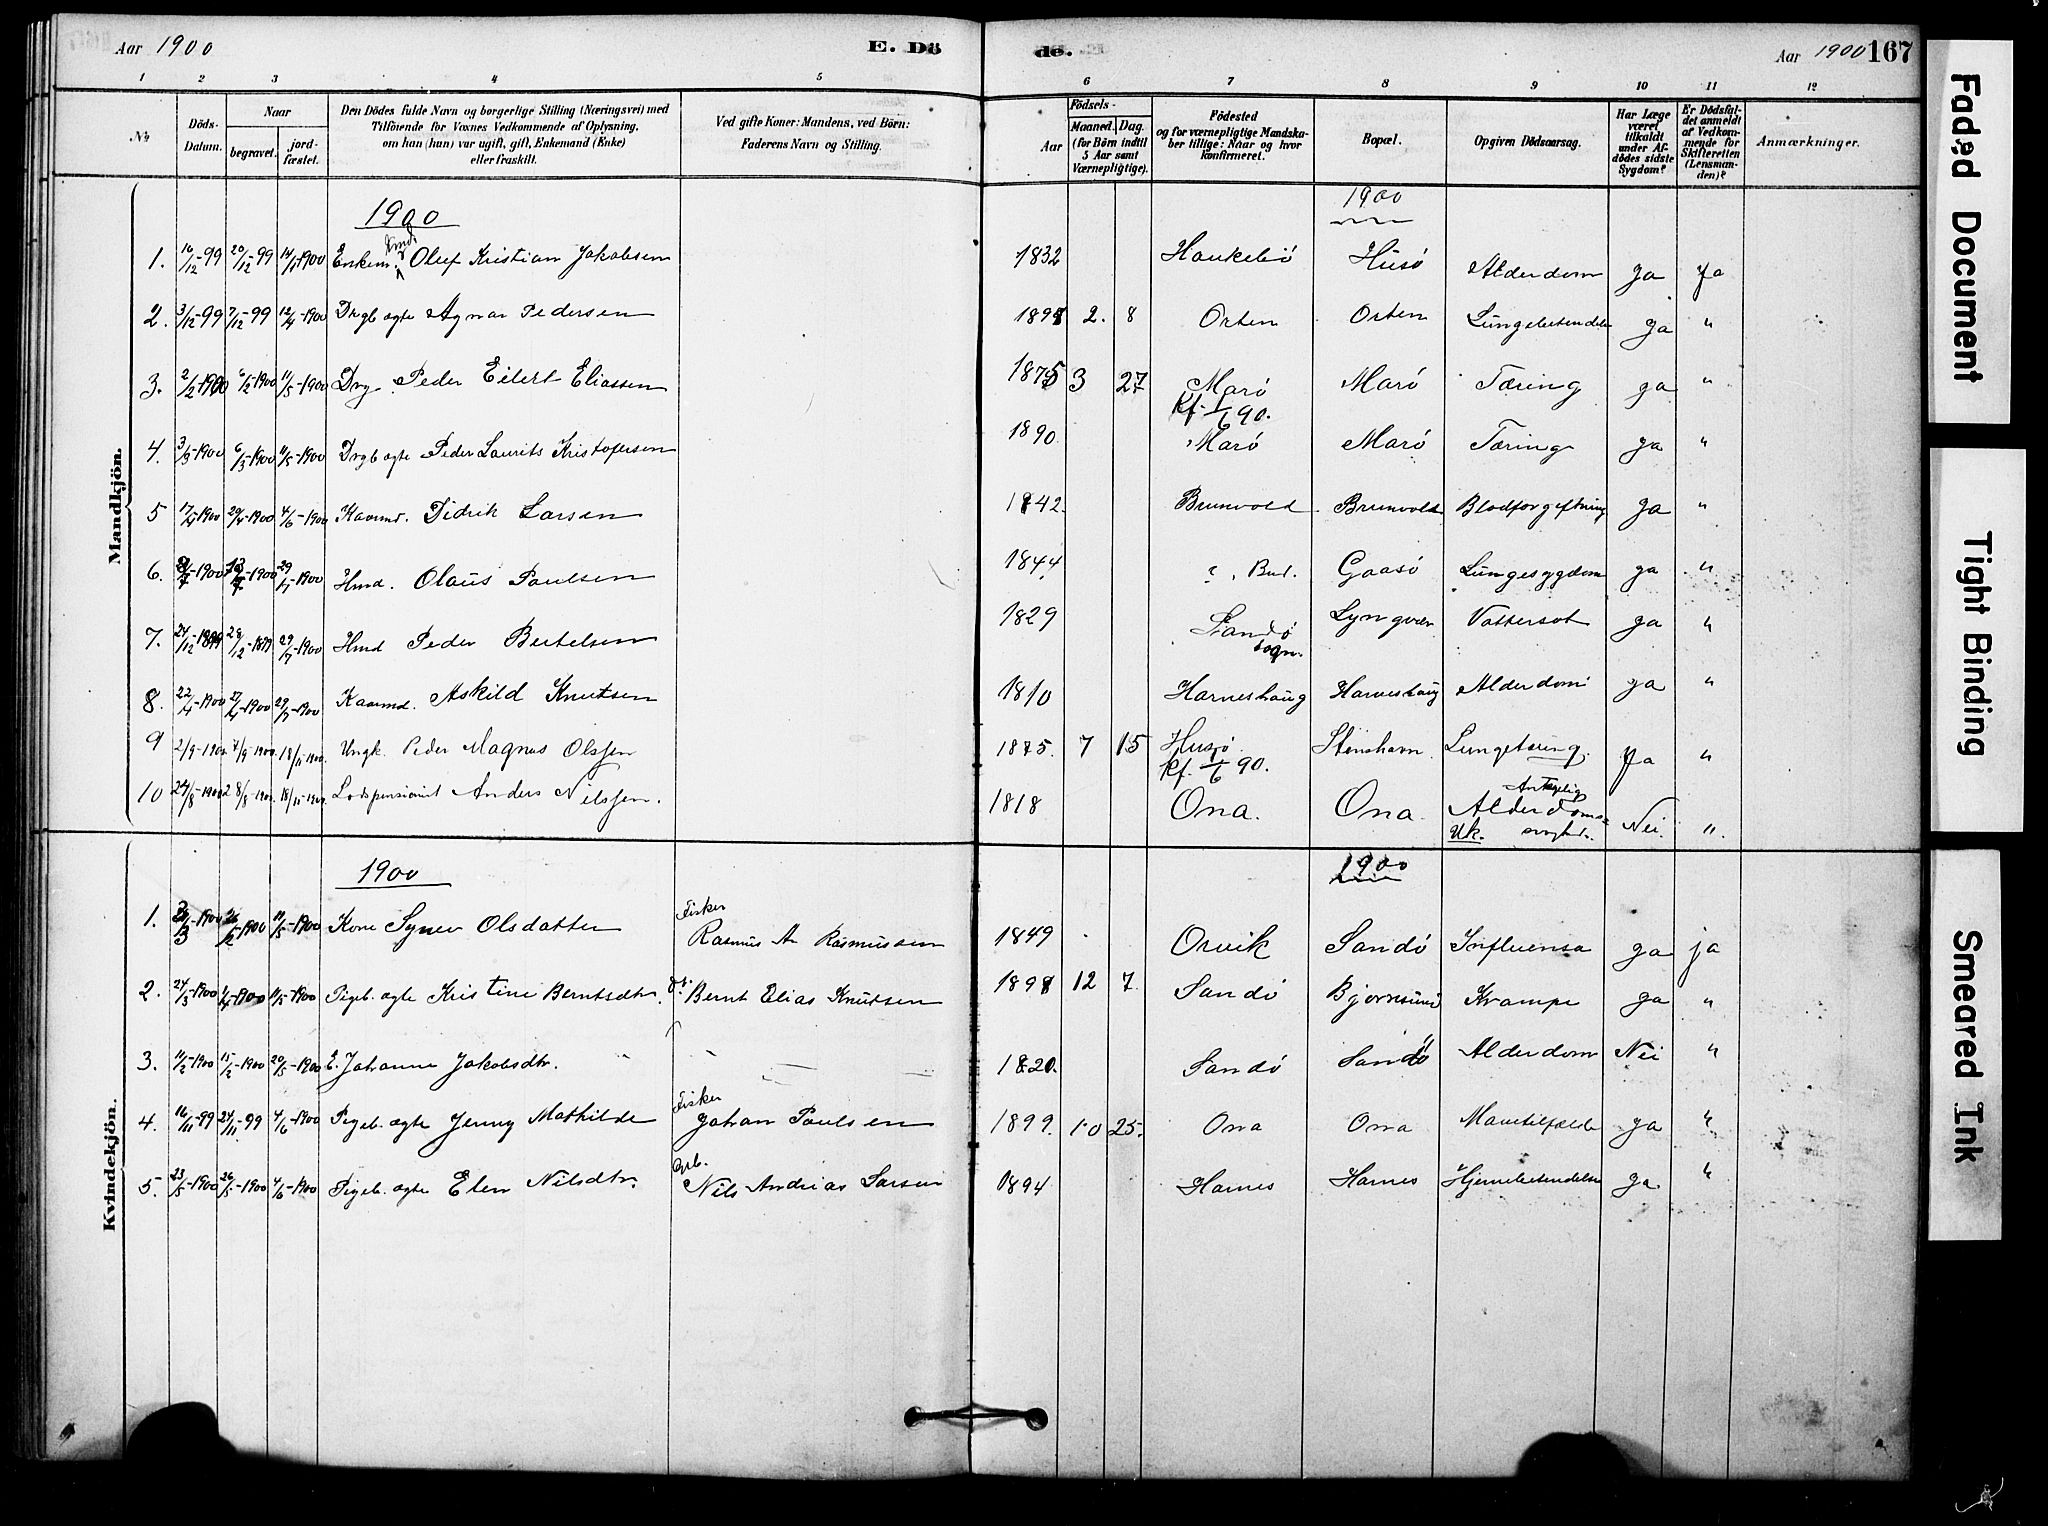 Aar 1900
E. Dö
de.
Aar 1900 167
1 2 3 4 5 6 7 8 9 10 11 12
№
Döds-
Datum.
Naar
begravet.
jord-
fæstet.
Den Dödes fulde Navn og borgerlige Stilling (Næringsvei) med
Tilföiende for Voxnes Vedkommende af Oplysning,
om han (hun) var ugift, gift, Enkemand (Enke)
eller fraskilt.
Ved gifte Koner: Mandens, ved Börn:
Faderens Navn og Stilling.
Aar
Födsels-
Maaned. Dag.
(for Börn indtil
5 Aar samt
Værnepligtige).
Födested
og for værnepligtige Mandska-
ber tillige: Naar og hvor
konfirmeret.
Bopæl.
Opgiven Dödsaarsag.
Har Læge
været
tilkaldt
under Af-
dödes sidste
Sygdom?
Er Dödsfal-
det anmeldt
af Vedkom-
mende for
Skifteretten
(Lensman-
den)?
Anmærkninger.
Mandkjön.
1900 1900
1. 16/12-99 20/12-99 1900 Enkem. Oluf Kristian Jakobsen 1832 Haukebø Husø Alderdom ja Ja
2. 3/12-99 7/12-99 12/4 1900 Drgb ægte Agnar Pedersen 2. 8 Orten Orten Lungebetendelse ja "
3. 2/2-1900 6/2-1900 11/5-1900 Drg. Peder Eilert Eliassen 1875 3 27 Marø Marø Tæring ja "
Kf. 1/6 90.
4. 3/3-1900 6/3-1900 11/5-1900 Drgb ægte Peder Laurits Kristofersen 1890 Marø Marø Tæring ja "
5 17/4-1900 1900 4/6-1900 Kaarmd. Didrik Larsen 1842. Brunvold Brunvold Blodforgiftning ja "
6. 1900 1900 29/7-1900 Hmd. Olaus Paulsen 1844 Bud. Gaasø Lungesygdom ja "
7. 24/12-1899 29/12-1899 29/7-1900 Hmd Peder Bertelsen 1829 Sandø Lyngvær Vattersot ja "
sogn.
8. 22/4-1900 27/4-1900 29/7-1900 Kaarmd. Askild Knutsen 1810 Harneshaug Harneshaug Alderdom ja "
9 2/9-1900 4/9-1900 18/11-1900. Ungk. Peder Magnus Olssen 1875. 7 15 Husø Stenshavn Lungetæring. Ja "
Kf. 1/6 90.
10 24/8-1900 28/8-1900 18/11-1900. Lodspensionist Anders Nilssen. 1818 Ona. Ona. Alderdoms- Nei. "
Uk.
Kvindekjön.
1900 1900
1. 1900 1900 11/5-1900 Kone Synev Olsdatter Fisker
Rasmus An Rasmussen 1849 Orvik Sandø Influensa ja ja
2. 24/3-1900 1900 11/5-1900 Pigeb. ægte Kristine Berntsdtr. Bernt Elias Knutsen 12 7. Sandø Bjørnsund Krampe ja "
3. 11/2-1900 15/2-1900 20/5-1900 E. Johanne Jakobsdtr. 1820. Sandø Sandø Alderdom Nei "
4. 16/11-99 24/11-99 4/6-1900 Pigeb. ægte Jenny Mathilde Fisker
Johan Paulsen 1899. 10 25. Ona Ona Mavetilfælde ja "
5. 23/5-1900 26/5-1900 4/6-1900 Pigeb. ægte Elen Nilsdtr. Nils Andrias Larsen 1894 Harnes Harnes Hjernebetendelse ja "
Faded Document
Tight Binding
Smeared Ink